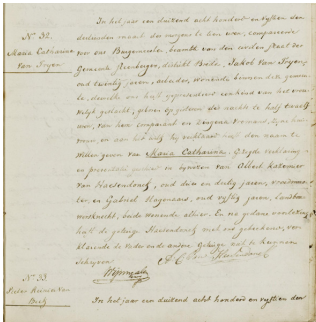 N.º 32.
Maria Catharina
van Tryen
In het jaar een duizend acht honderd en vyftien den
dertienden maand des morgens te tien uren, compareerde
voor ons Burgemeester, beambte van den civilen staat der
Gemeente distrikt Jakob van Tryen,
oud twintig jaren, arbeider, woonende binnen deze gemeen-
te, dewelke ons heeft gepresenteerd een kind van het vrou-
welyk geslacht, geboren gisteren des nachts te half twaalf
uren, van hem comparant en
vrouw, en aan het welk hy verklaart heeft den naam te
willen geven van Maria Catharina; Gezegde verklaring
en presentatie gedaan in bywezen van Albert
van Haelendonck, oud drie en dertig jaren,
en Gabriel Hagenaars, oud vyftig jaren, landbou-
wersknecht, beide wonende alhier. En na gedane voorlezing
heeft de getuige Haelendonck met ons geteekend, ver-
klarende de vader ende andere getuige niet te kunnen
Schryven
N.º 33
van
In het jaar een duizend acht honderd en vyftien den